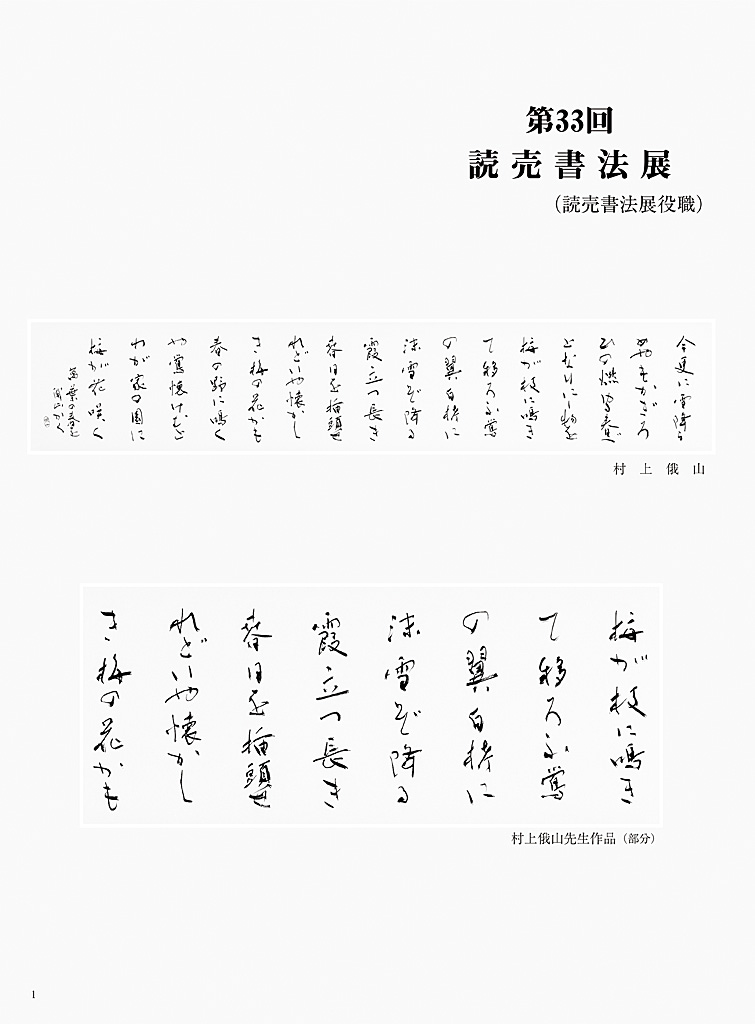 第33回
読売書法展
（読売書法展役職）
今更に雪降る
めやもかぎろ
ひの燃ゆる春べ
となりにし物を
梅が枝に鳴き
て移ろふ鶯
の翼白妙に
沫雪ぞ降る
霞立つ長き
春日を挿頭せ
れどいや懐かし
き梅の花かも
春の野に鳴く
や鶯懐けむと
わが家の園に
梅が花咲く
村上俄山
梅が枝に鳴き
て移ろふ鶯
の翼白妙に
沫雪ぞ降る
霞立つ長き
春日を挿頭せ
れどいや懐かし
き梅の花かも
村上俄山先生作品（部分）
1